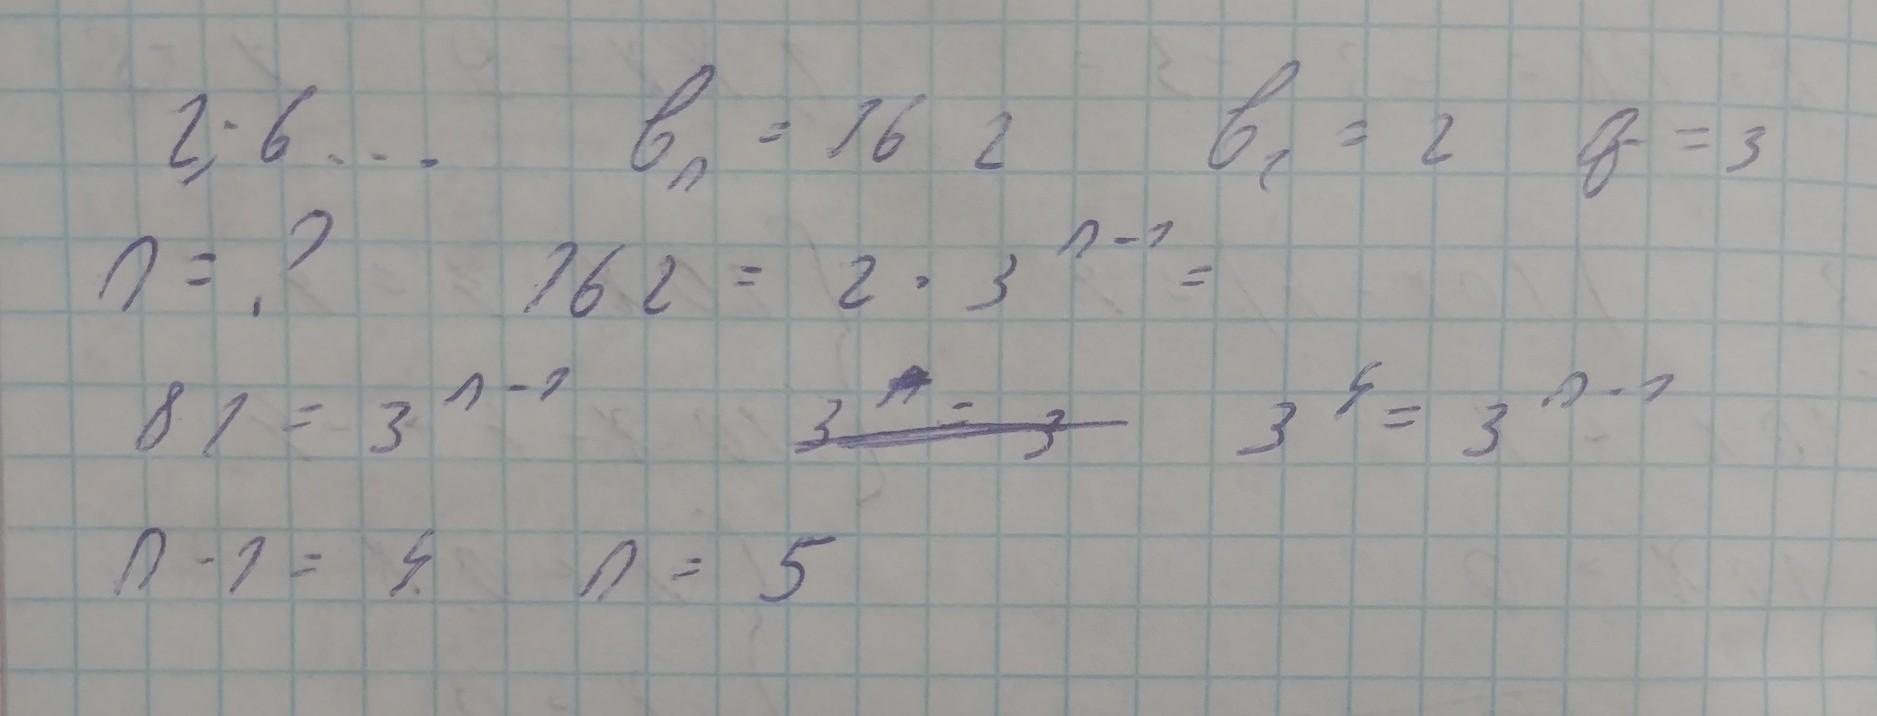 2; 6 . . . bₙ = 162 b₁ = 2 q = 3
n = ? 162 = 2 · 3ⁿ⁻¹ =
81 = 3ⁿ⁻¹ 3⁴ = 3ⁿ⁻¹
n - 1 = 4 n = 5